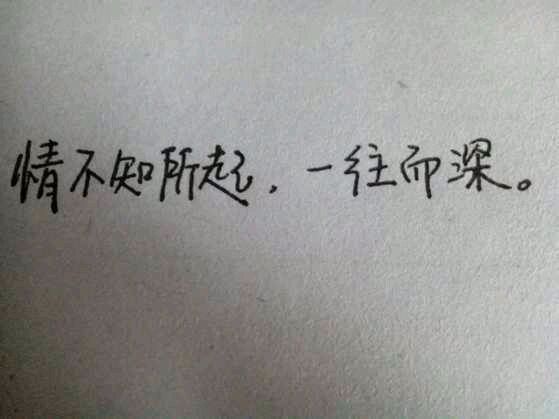 情不知所起，一往而深。